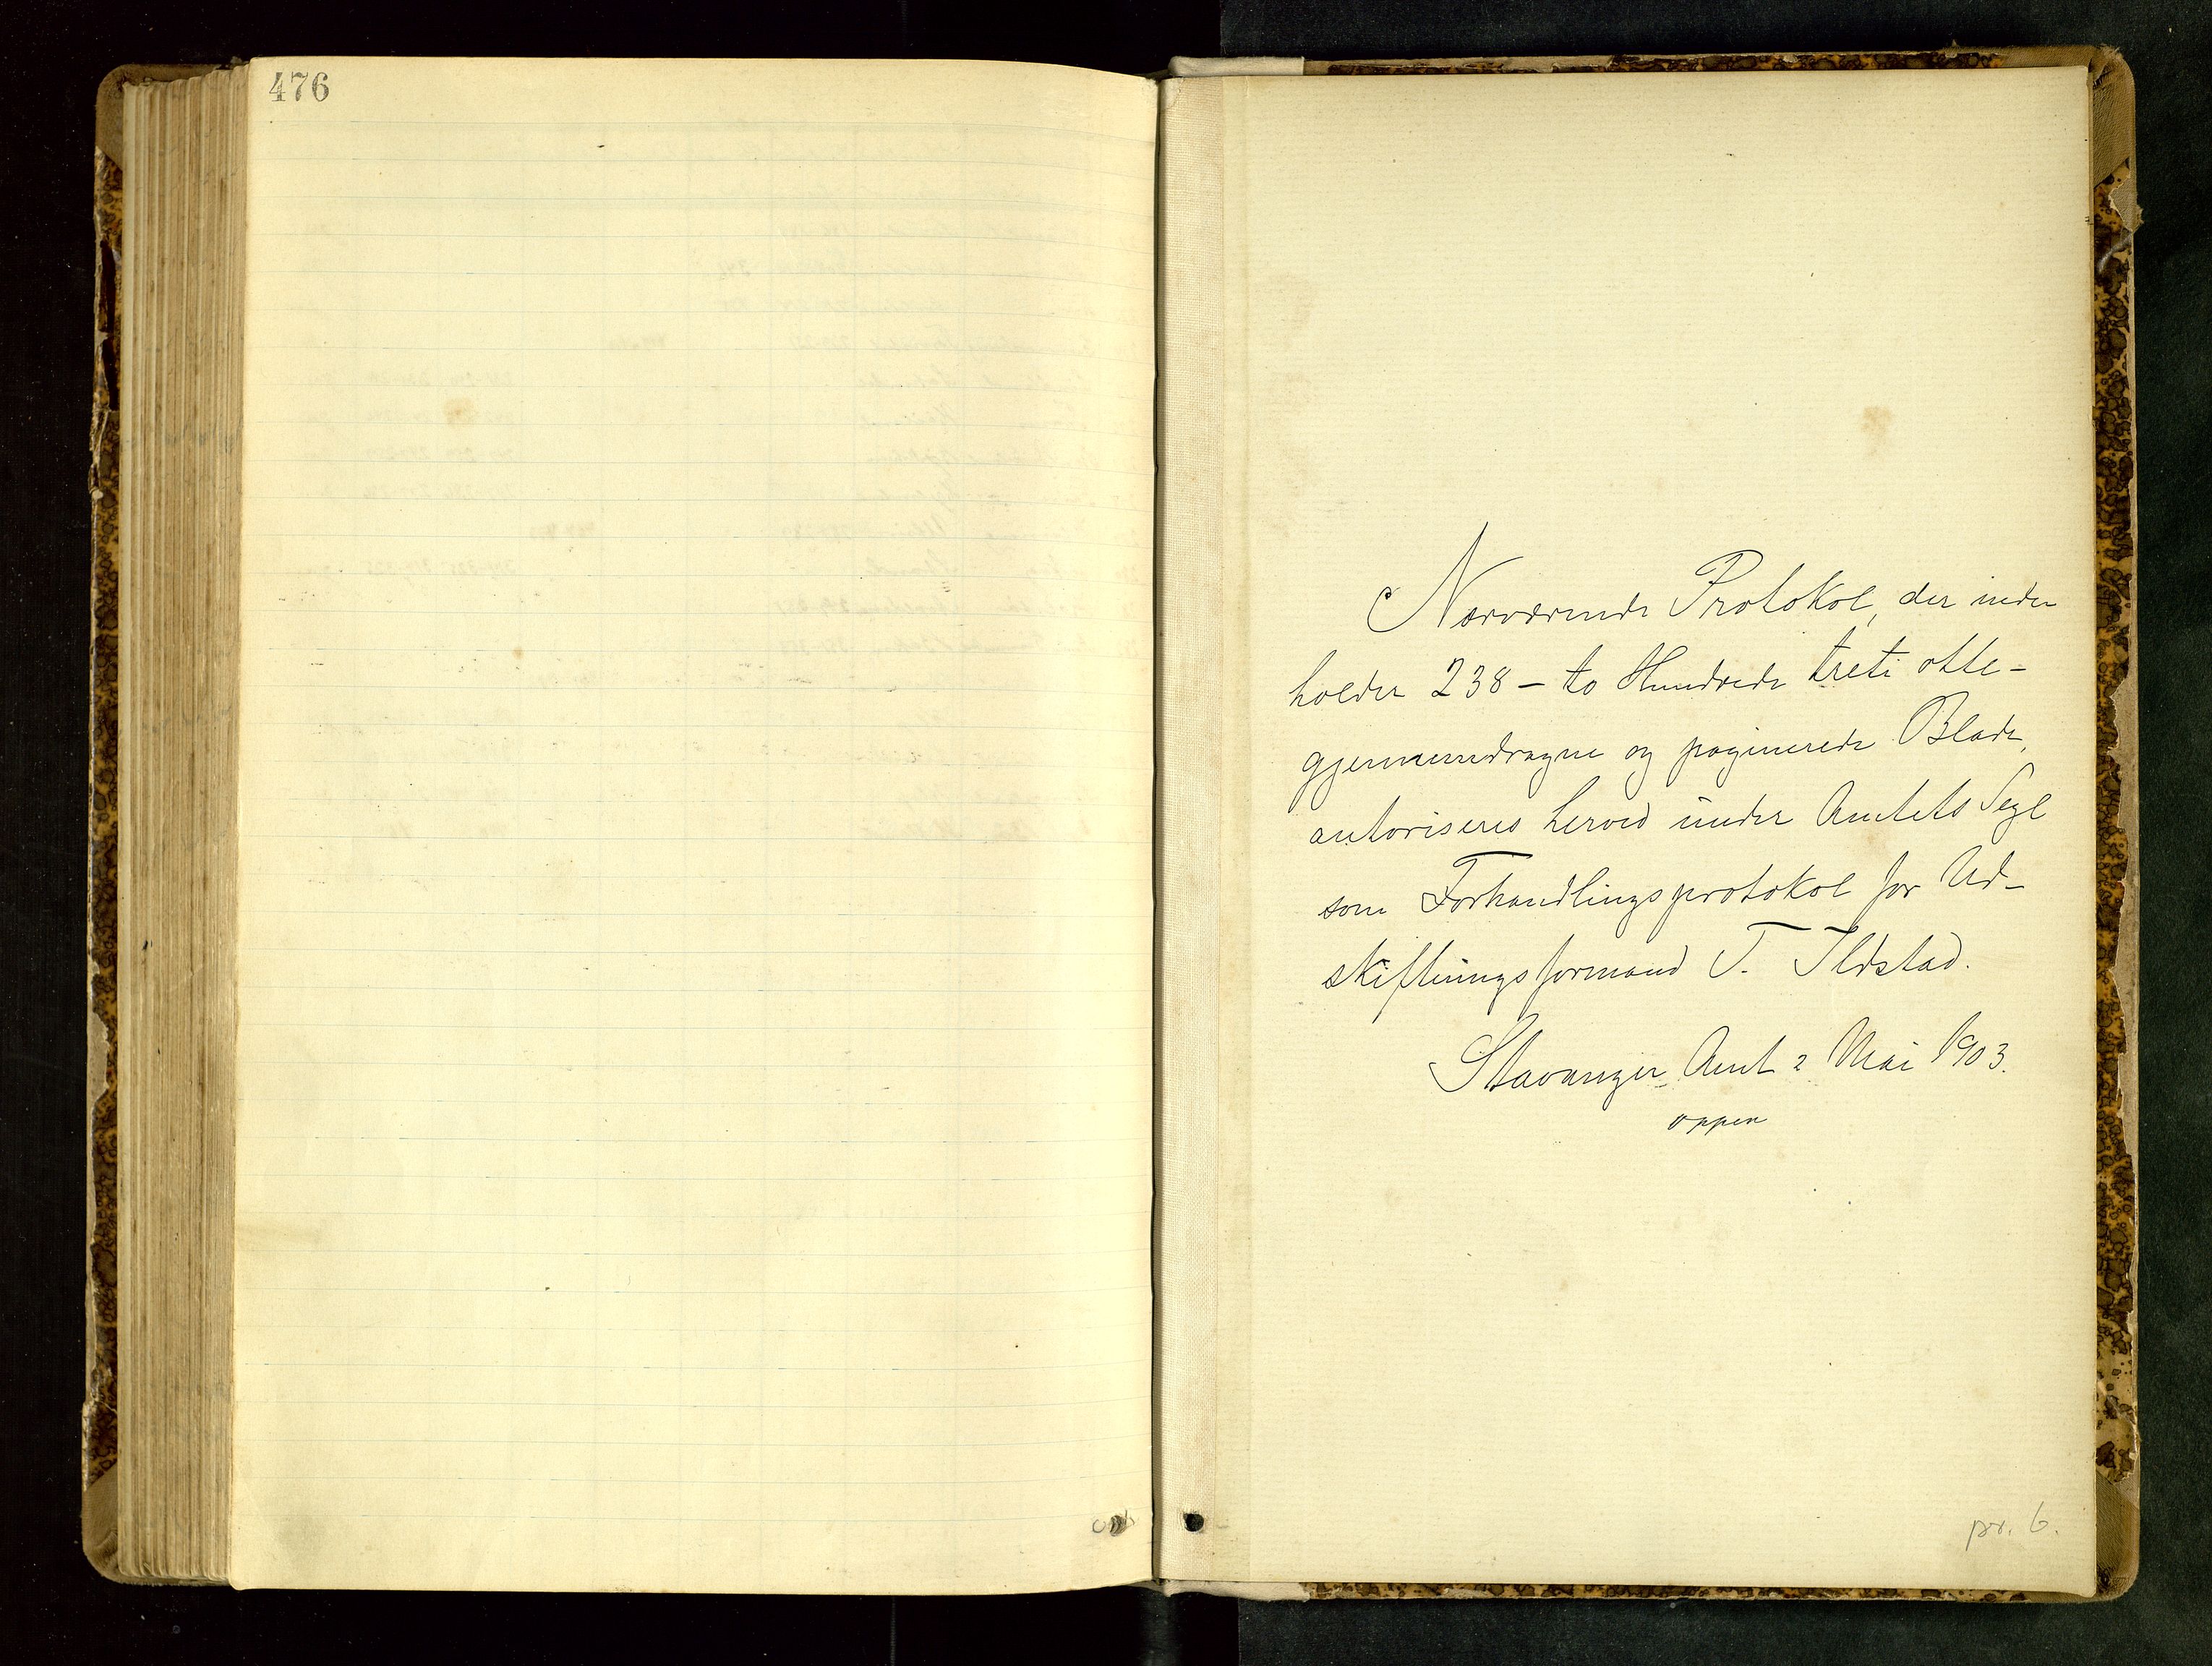 476
Nærværende Protokol, der inde
holder 238 - to Hundrede treti otte -
gjennemdragne og paginerede Blade,
autoriseres herved under Amtets Segl
som Forhandlingsprotokol for Ud-
skiftningsformand T. Ildstad.
Stavanger Amt 2 Mai 1903.
oppen
pr. 6.